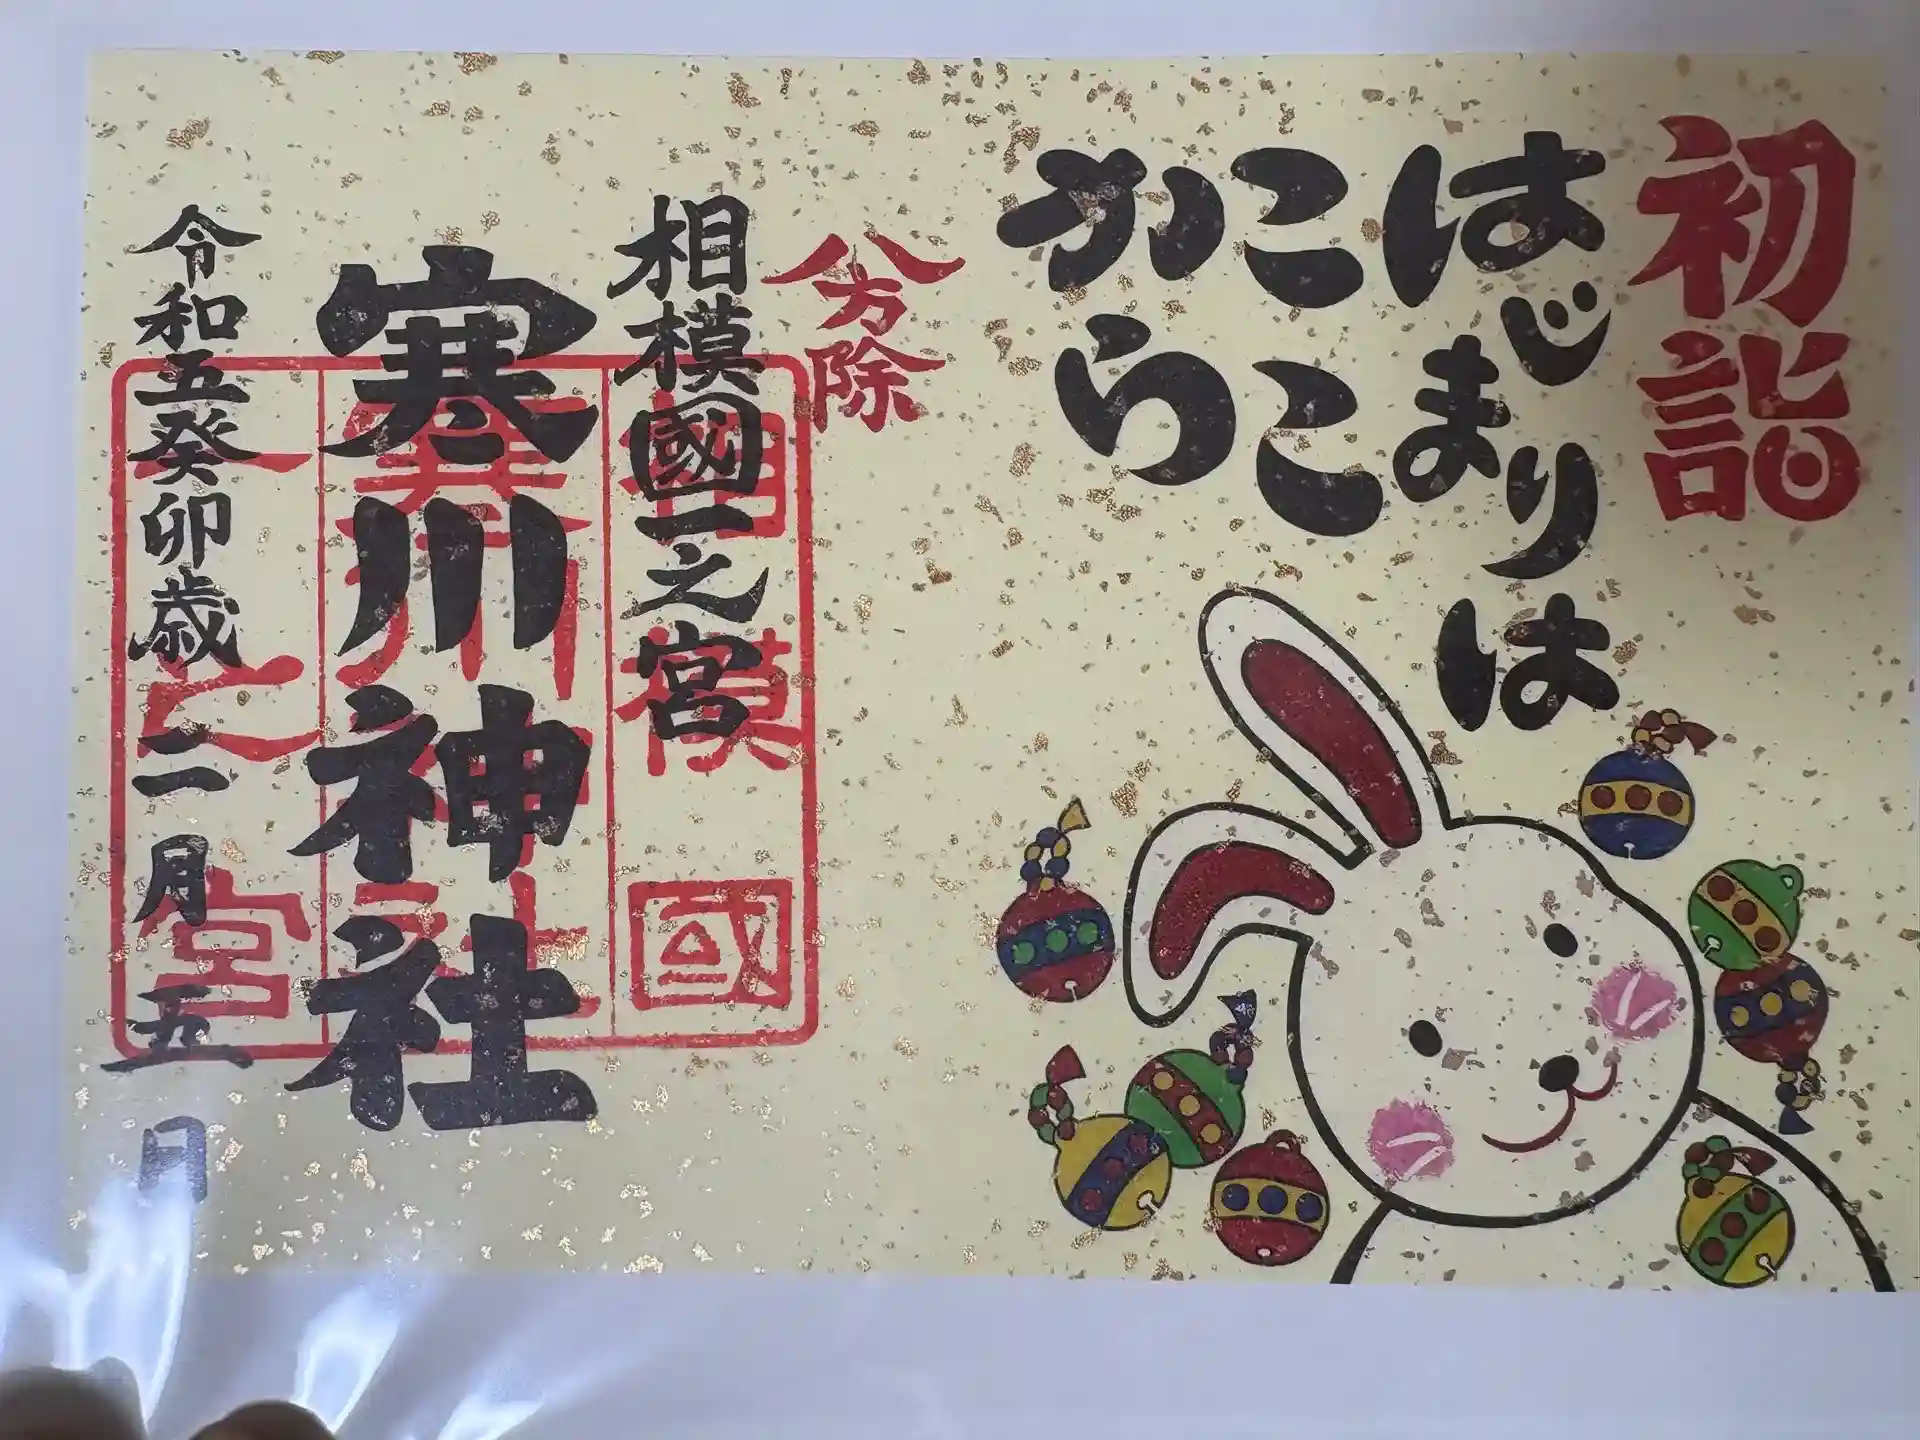 初詣
はじまりは
ここ
から
八方除
相模國一之宮
寒川神社
令和五癸卯歳二月五日
相模國
寒川神社
一之宮